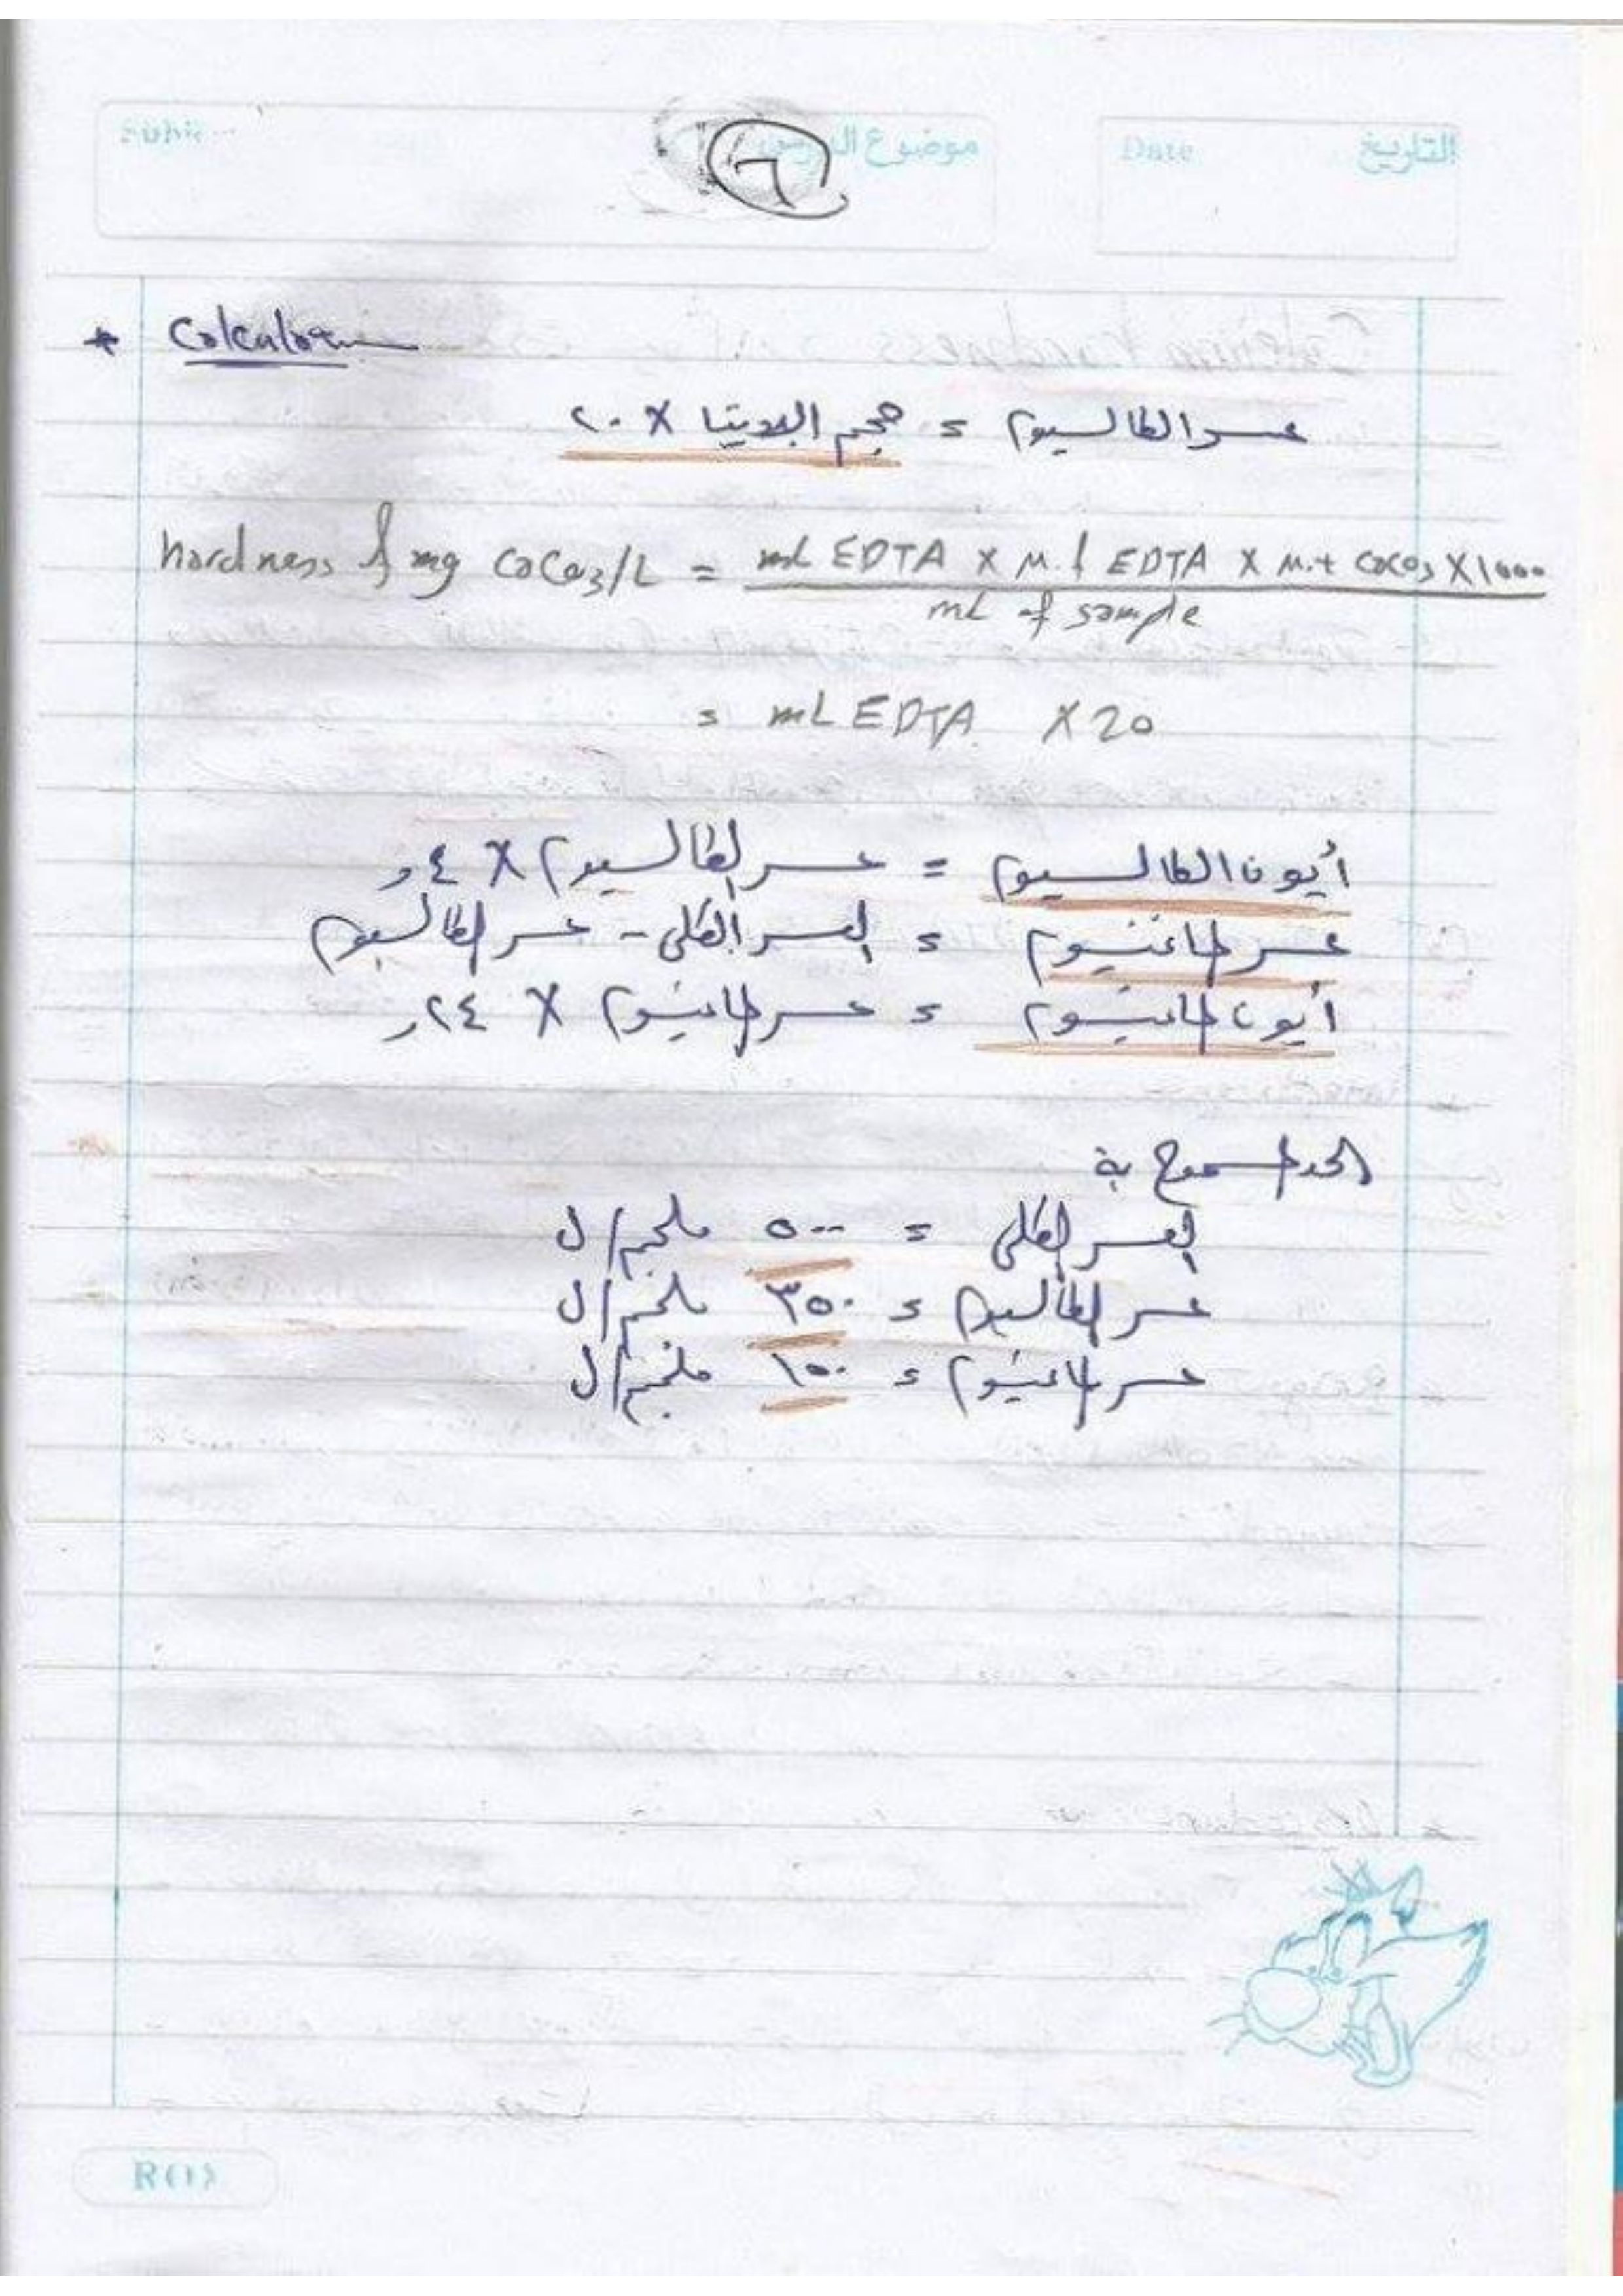 موضوع الدرس
Date التاريخ
٦
* Calculation
عسر الكالسيوم = حجم الايديتا X ٢٠
hardness of mg CaCO3/L = mL EDTA X M. of EDTA X M.t CaCO3 X 1000
mL of sample
= mL EDTA X 20
أيون الكالسيوم = عسر الكالسيوم X ٤,
عسر الماغنسيوم = العسر الكلى - عسر الكالسيوم
أيون الماغنسيوم = عسر الماغنسيوم X ٢٤,
الحد المسموح بة
العسر الكلى = ٥٠٠ ملجم/ل
عسر الكالسيوم = ٣٥٠ ملجم/ل
عسر الماغنسيوم = ١٥٠ ملجم/ل
R(1)